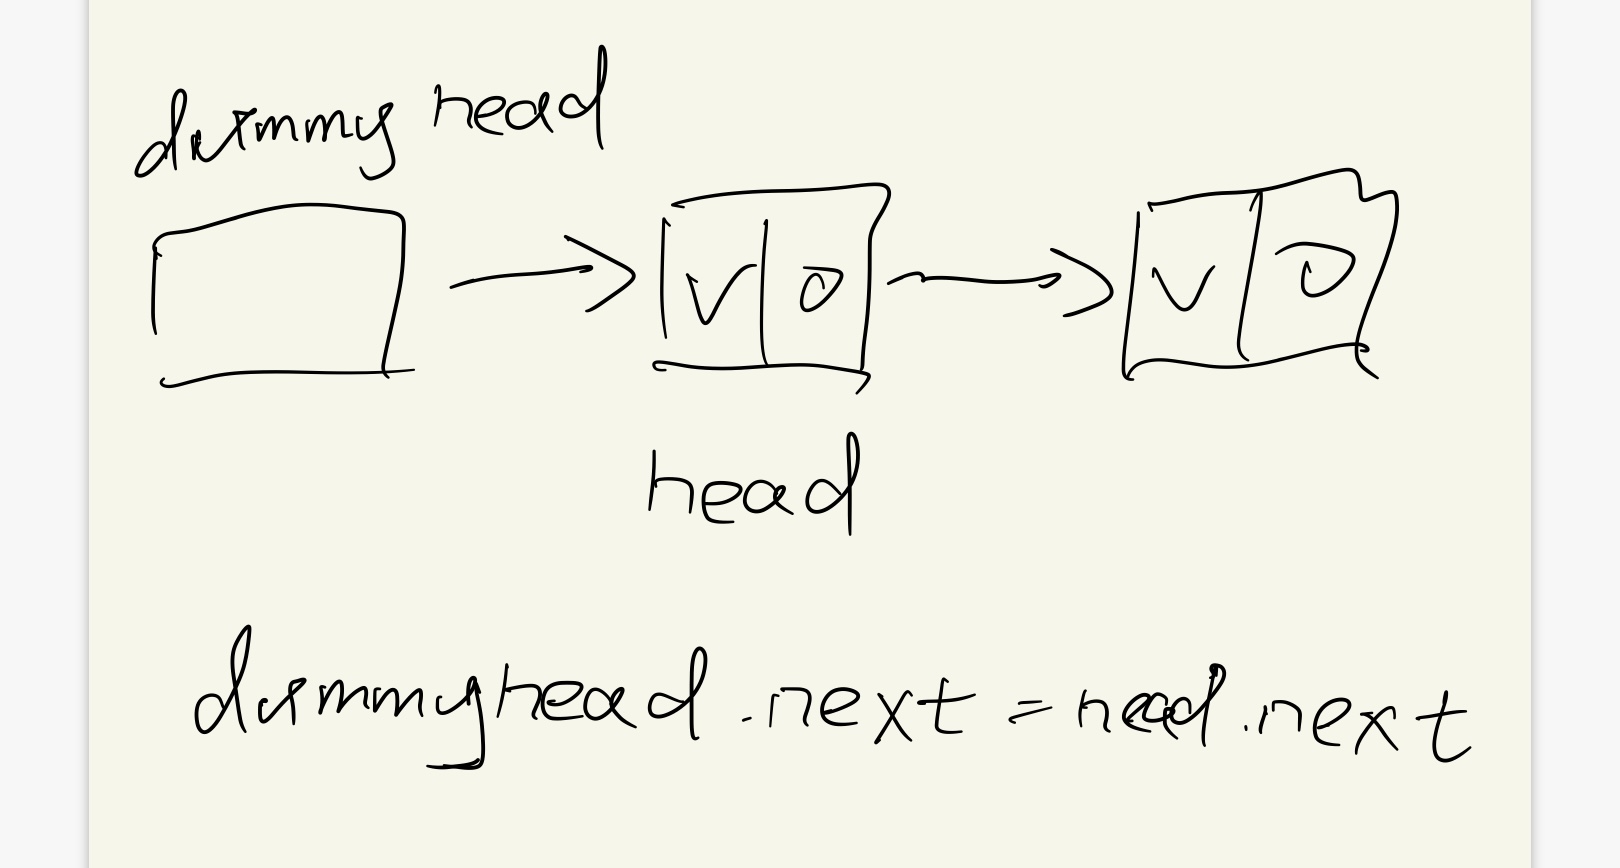 dummy head
v 0 v 0
head
dummyhead.next = head.next